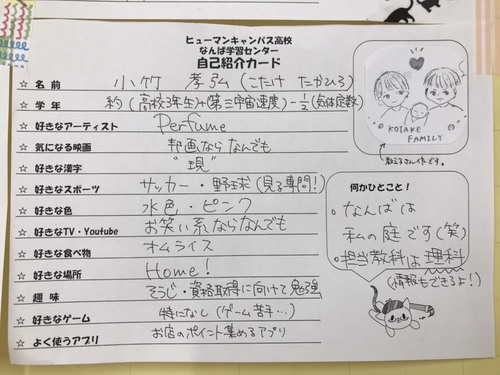 ヒューマンキャンパス高校
なんば学習センター
自己紹介カード
☆ 名前 小竹 孝弘 (こたけ たかひろ)
☆ 学年 約(高校3年生)+(第三宇宙速度)-1/2(気体定数)
☆ 好きなアーティスト Perfume
☆ 気になる映画 邦画ならなんでも
☆ 好きな漢字 "現"
☆ 好きなスポーツ サッカー・野球(見る専門!)
☆ 好きな色 水色・ピンク
☆ 好きなTV・Youtube お笑い系ならなんでも
☆ 好きな食べ物 オムライス
☆ 好きな場所 Home!
☆ 趣味 そうじ・資格取得に向けて勉強
☆ 好きなゲーム 特になし(ゲーム苦手…)
☆ よく使うアプリ お店のポイント集めるアプリ
KOTAKE
FAMILY
教え子さん作です。
何かひとこと!
・なんばは
私の庭です(笑)
・担当教科は理科
(情報もできるよ!)